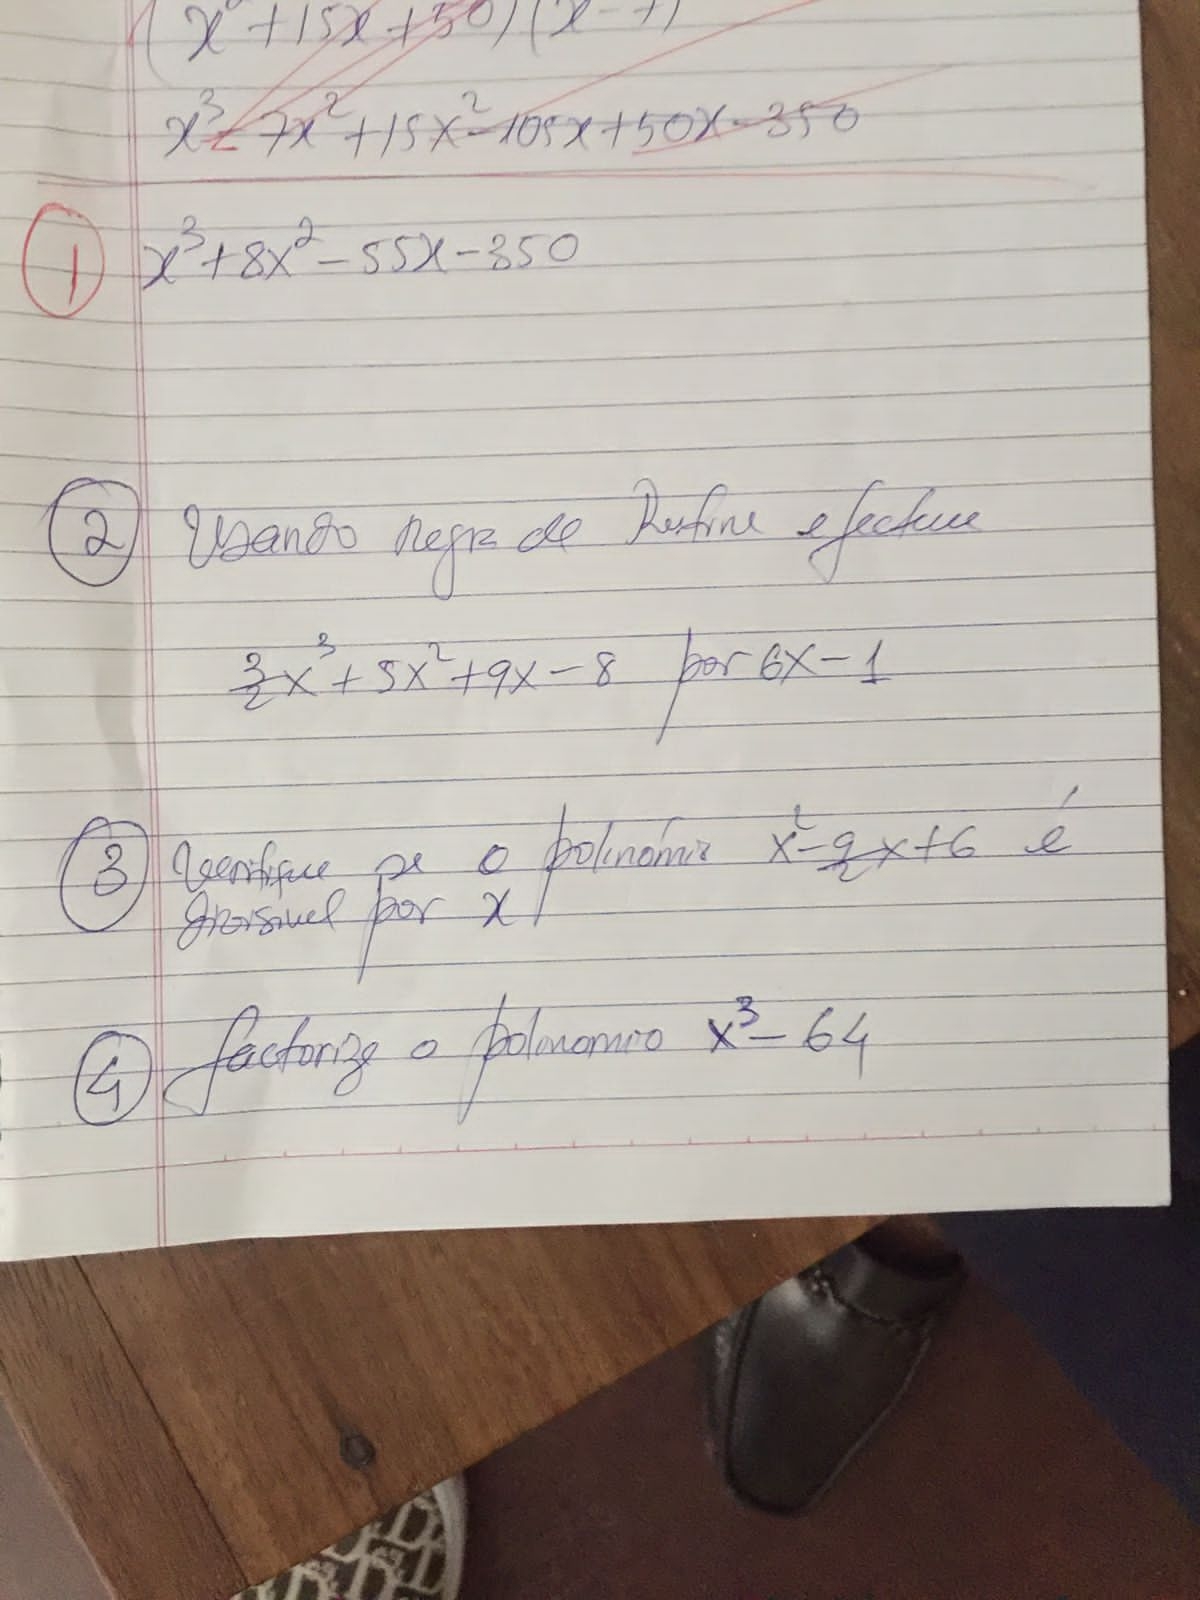 (x² + 15x + 50)(x - 7)
x³ - 7x² + 15x² - 105x + 50x - 350
1 x³ + 8x² - 55x - 350
2 Usando regra de Rufine efectue
3/2x³ + 5x² + 9x - 8 por 6x - 1
3 Verifique se o polinómio x² - 9/2x + 6 é
divisivel por x
4 factorize o polinomio x³ - 64